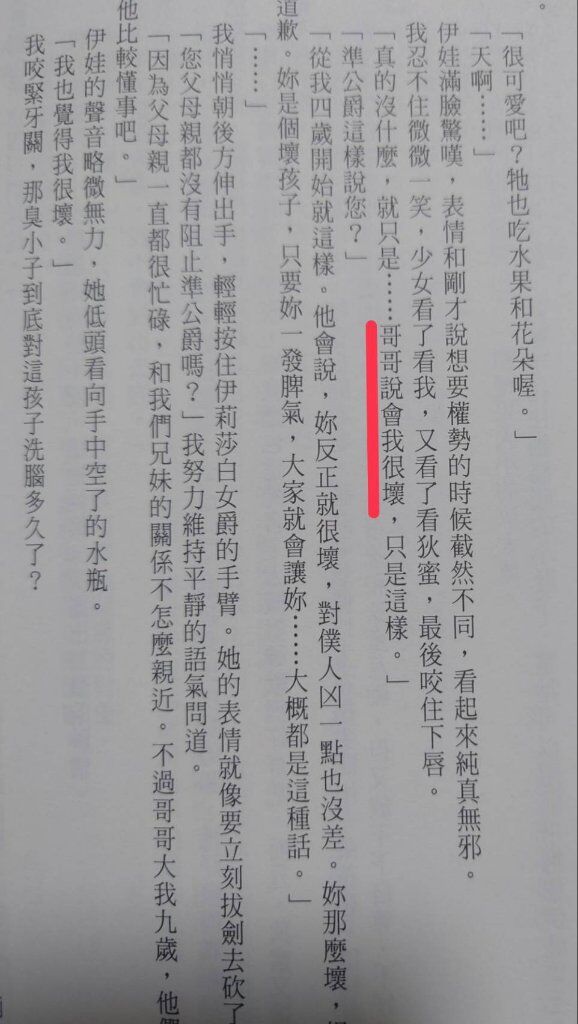 。
「很可愛吧？牠也吃水果和花朵喔。」
「天啊……」
伊娃滿臉驚嘆，表情和剛才說想要權勢的時候截然不同，看起來純真無邪。
我忍不住微微一笑，少女看了看我，又看了看狄蜜，最後咬住下唇。
「真的沒什麼，就只是……哥哥說會我很壞，只是這樣。」
「準公爵這樣說您？」
「從我四歲開始就這樣。他會說，妳反正就很壞，對僕人凶一點也沒差。妳那麼壞，
道歉。妳是個壞孩子，只要妳一發脾氣，大家就會讓妳……大概都是這種話。」
「……」
我悄悄朝後方伸出手，輕輕按住伊莉莎白女爵的手臂。她的表情就像要立刻拔劍去砍了
「您父母親都沒有阻止準公爵嗎？」我努力維持平靜的語氣問道。
「因為父母親一直都很忙碌，和我們兄妹的關係不怎麼親近。不過哥哥大我九歲，他們
他比較懂事吧。」
伊娃的聲音略微無力，她低頭看向手中空了的水瓶。
「我也覺得我很壞。」
我咬緊牙關，那臭小子到底對這孩子洗腦多久了？